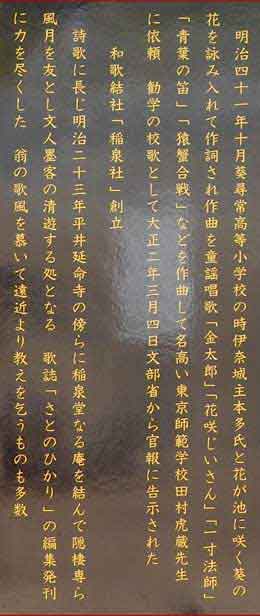 明治四十一年十月葵尋常高等小学校の時伊奈城主本多氏と花が池に咲く葵の
花を詠み入れて作詞され作曲を童謡唱歌「金太郎」「花咲じいさん」「一寸法師」
「青葉の笛」「猿蟹合戦」などを作曲して名高い東京師範学校田村虎蔵先生
に依頼　勧学の校歌として大正二年三月四日文部省から官報に告示された
和歌結社「稲泉社」創立
詩歌に長じ明治二十三年平井延命寺の傍らに稲泉堂なる庵を結んで隠棲専ら
風月を友とし文人墨客の清遊する処となる　歌誌「さとのひかり」の編集発刊
に力を尽くした　翁の歌風を慕いて遠近より教えを乞うものも多数